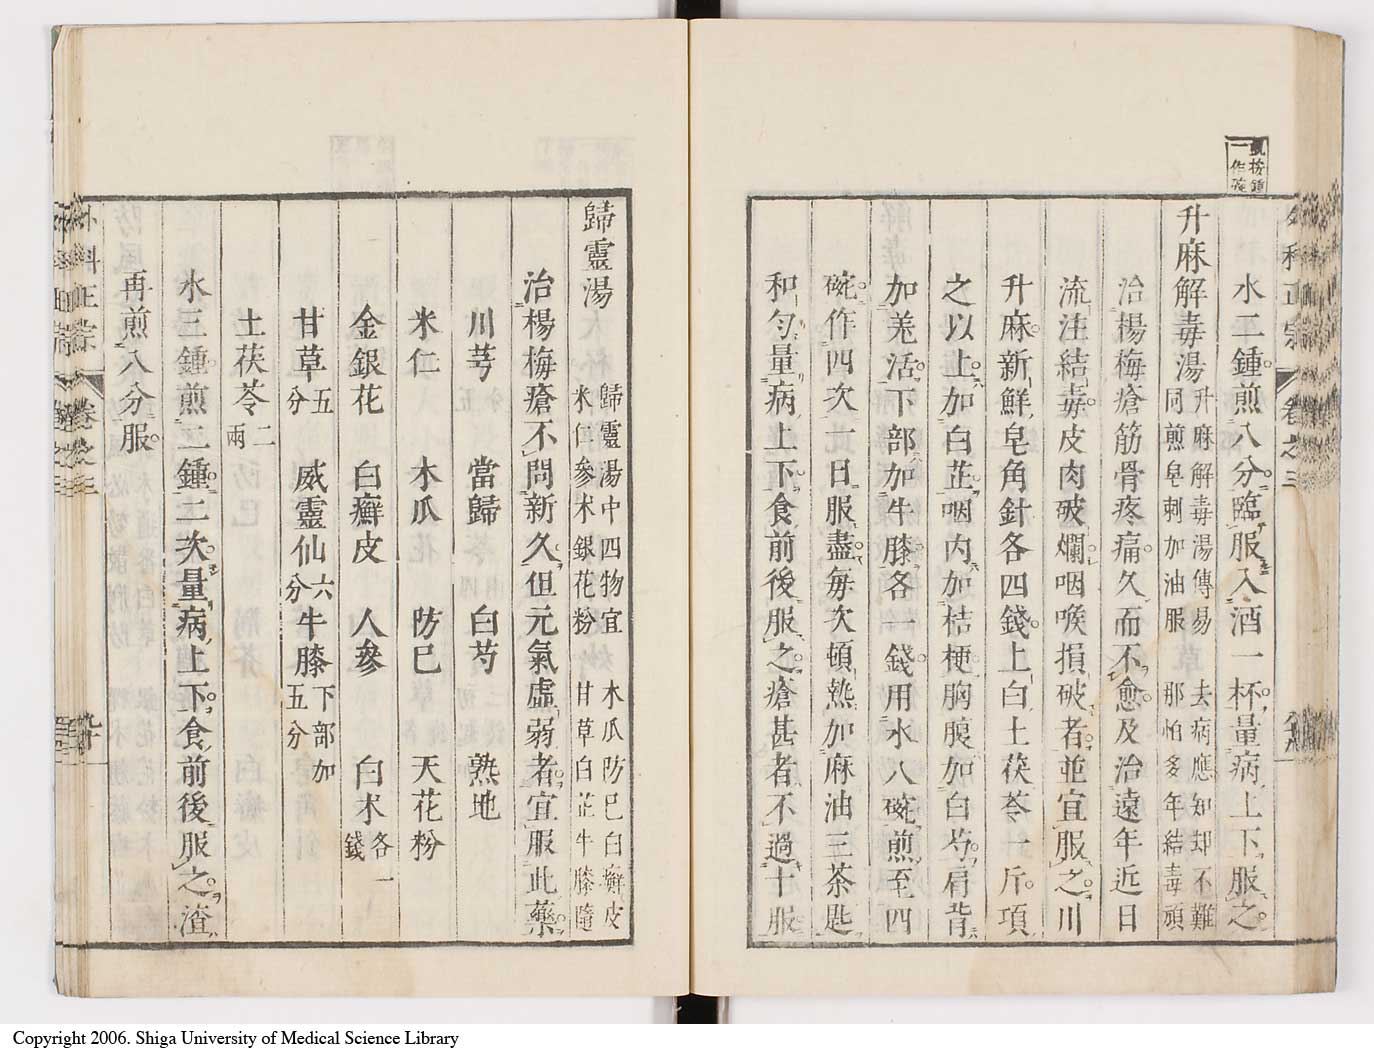 按鍾
一作碗
外科正宗 卷之三
水二鍾煎八分臨服入酒一杯量病上下服之
升麻解毒湯 升麻解毒湯傳易 去病應知却不難
同煎皂刺加油服 那怕多年結毒頑
治楊梅瘡筋骨疼痛久而不愈及治遠年近日
流注結毒皮肉破爛咽喉損破者並宜服之川
升麻新鮮皂角針各四錢上白土茯苓一斤項
之以上加白芷咽內加桔梗胸腹加白芍肩背
加羌活下部加牛膝各一錢用水八碗煎至四
碗作四次一日服盡每次頓熱加麻油三茶匙
和勻量病上下食前後服之瘡甚者不過十服
歸靈湯 歸靈湯中四物宜 木瓜防已白癬皮
米仁參朮銀花粉 甘草白芷牛膝隨
治楊梅瘡不問新久但元氣虛弱者宜服此藥
川芎 當歸 白芍 熟地
米仁 木瓜 防已 天花粉
金銀花 白癬皮 人參 白朮各一錢
甘草五分 威靈仙六分 牛膝下部加五分
土茯苓二兩
水三鍾煎二鍾二次量病上下食前後服之渣
再煎八分服
外科正宗 卷之三
Copyright 2006. Shiga University of Medical Science Library